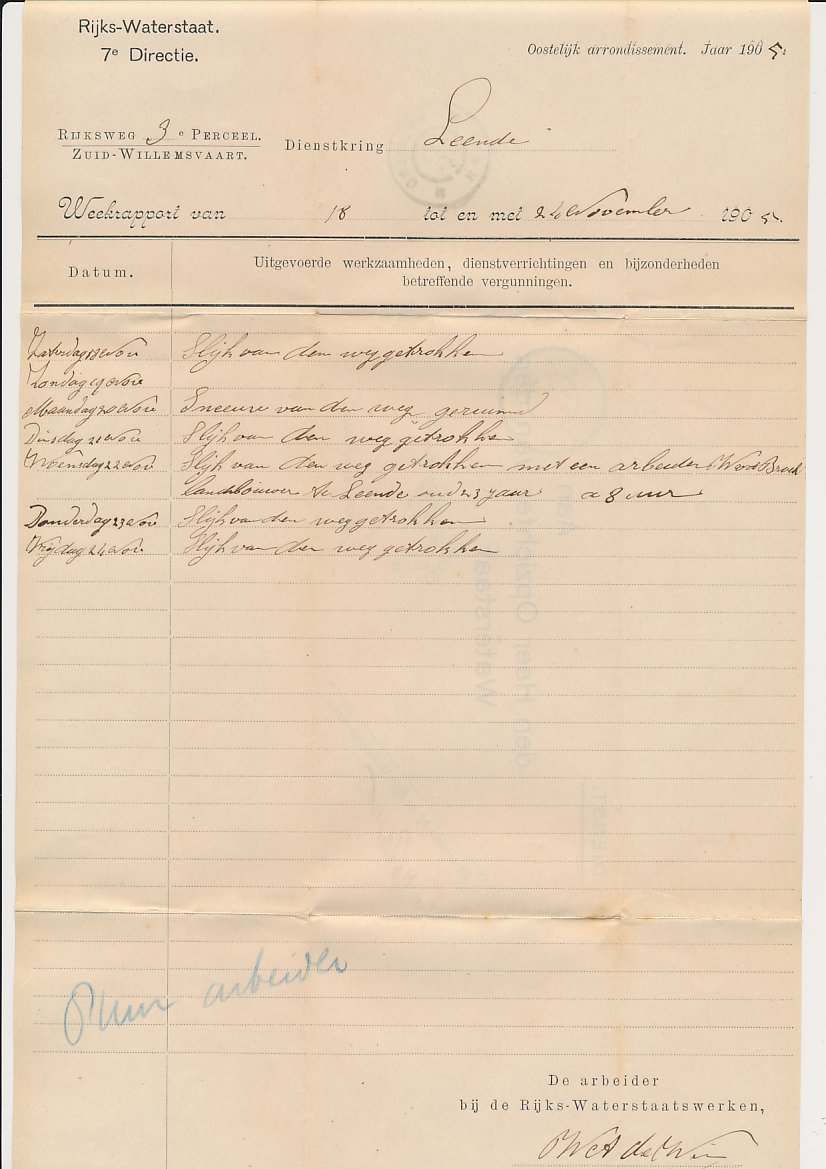 Rijks-Waterstaat.
7e Directie.
Oostelijk arrondissement. Jaar 1905
Rijksweg 3e Perceel.
Zuid-Willemsvaart.
Dienstkring Leende
Weekrapport van 18 tot en met 24 November 1905
Datum.
Uitgevoerde werkzaamheden, dienstverrichtingen en bijzonderheden
betreffende vergunningen.
Zaterdag 18 Nov Slijk van den weg getrokken
Zondag 19 Nov
Maandag 20 Nov Sneeuw van den weg geruimd
Dinsdag 21 Nov Slijk van den weg getrokken
Woensdag 22 Nov Slijk van den weg getrokken met een arbeider
landbouwer te Leende oud 23 jaar a 8 uur
Donderdag 23 Nov Slijk van den weg getrokken
Vrijdag 24 Nov Slijk van den weg getrokken
arbeider
De arbeider
bij de Rijks-Waterstaatswerken,